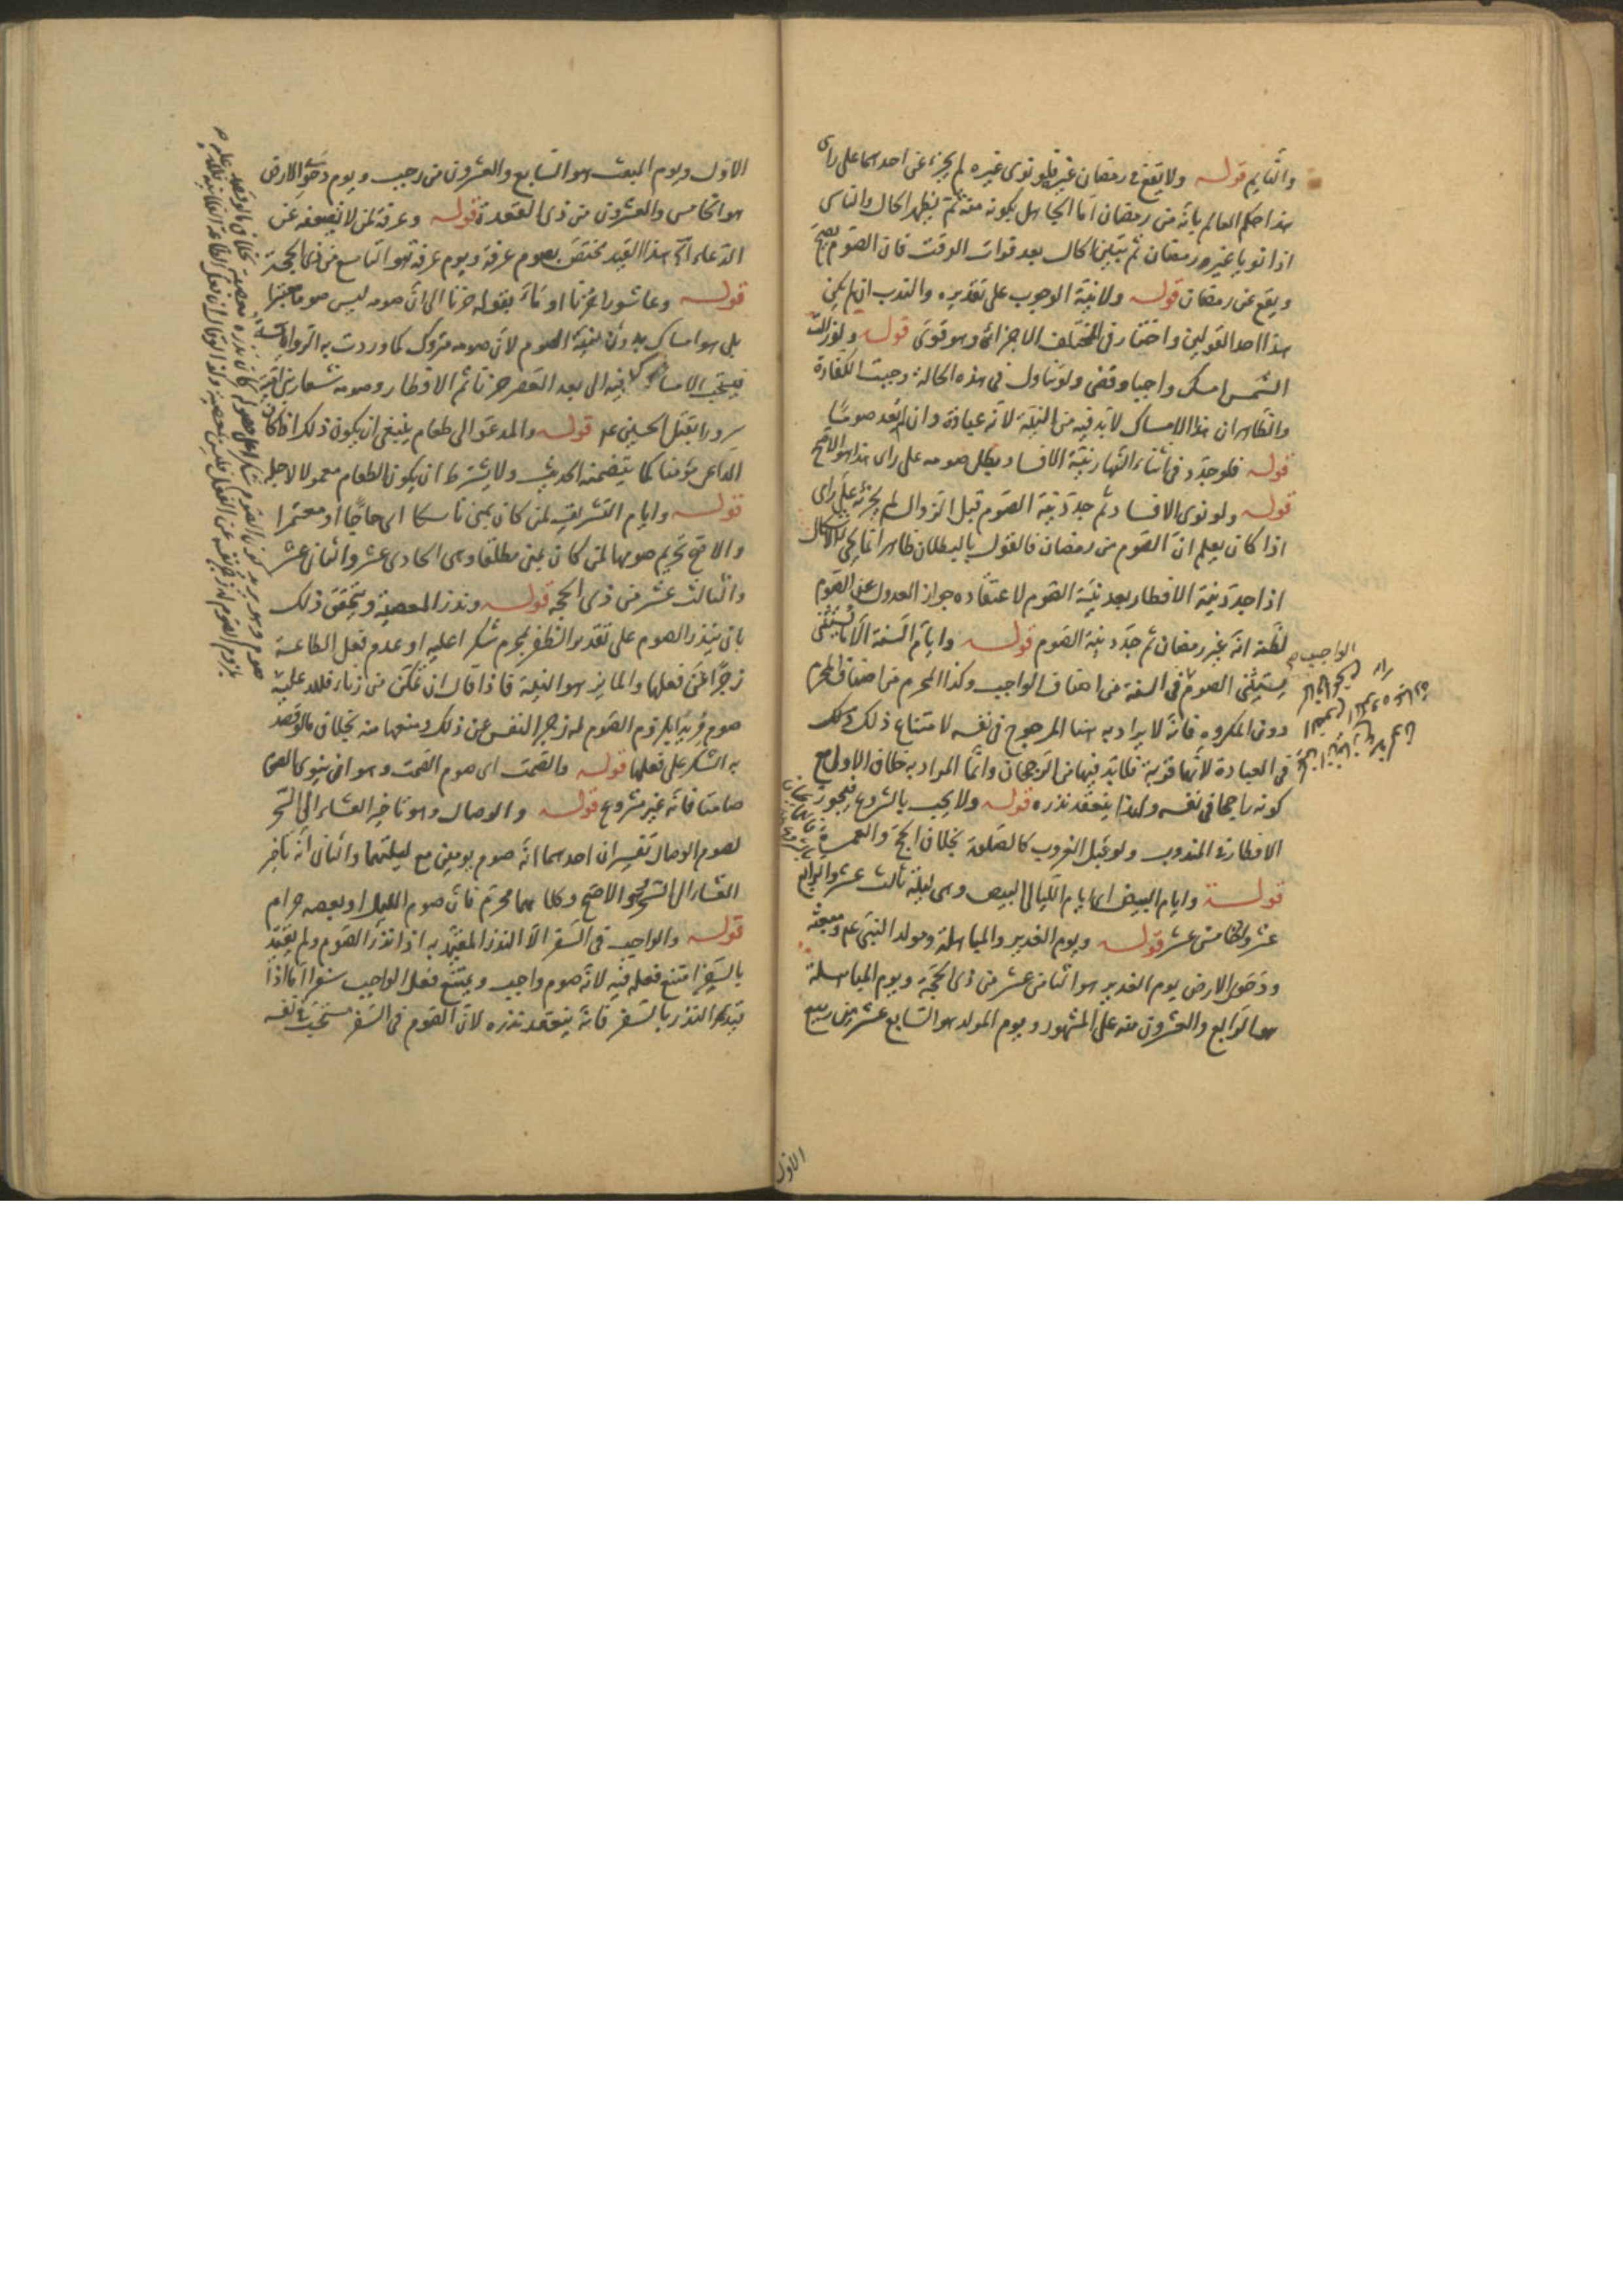 والنايم قوله ولا يقع في رمضان غيره فلو نوى غيره لم يجز عن احدهما على راى
هذا حكم العالم بانه من رمضان اما الجاهل بكونه منه ثم يظهر الحال والناسى
اذا نويا غير رمضان ثم تبين الحال بعد فوات الوقت فان الصوم يصح
ويقع عن رمضان قوله ولا نية الوجوب على تقديره والندب ان لم يكن
هذا احد القولين واختار في المختلف الاجزاء وهو قوى قوله ولو زالت
الشمس امسك واجبا وقضى ولو تناول في هذه الحالة وجبت الكفارة
والظاهر ان هذا الامساك لا بد فيه من النية لانه عبادة وان لم يعد صوما
قوله فلو جدد في اثناء النهار نية الافساد بطل صومه على راى هذا هو الاصح
قوله ولو نوى الافساد ثم جدد نية الصوم قبل الزوال لم يجزئه على راى
اذا كان يعلم ان الصوم من رمضان فالقول بالبطلان ظاهر انما يجى الاشكال
اذا جدد نية الافطار بعد نية الصوم لاعتقاده جواز العدول عن الصوم
لظنه انه غير رمضان ثم جدد نية الصوم قوله وايام السنة الا ما يستثنى
يستثنى الصوم في السنة من اصناف الواجب وكذا المحرم من اصناف المحرم
الواجب
دون المكروه فانه لا يراد به هنا المرجوح في نفسه لامتناع ذلك
في العبادة لانها قربة فلا بد فيها من الرجحان وانما المراد به خلاف الاولى مع
كونه راجحا في نفسه ولهذا ينعقد نذره قوله ولا يجب بالشروع فيجوز
الافطار في المندوب ولو قبل الغروب كالصلوة بخلاف الحج والعمرة
قوله وايام البيض اى ايام الليالى البيض وهى ليلة ثالث عشر والرابع
عشر والخامس عشر قوله ويوم الغدير والمباهلة ومولد النبى عم ومبعثه
ودحو الارض يوم الغدير هو الثامن عشر من ذى الحجة ويوم المباهلة
هو الرابع والعشرون منه على المشهور ويوم المولد هو السابع عشر من ربيع
الاول
الاول ويوم المبعث هو السابع والعشرون من رجب ويوم دحو الارض
هو الخامس والعشرون من ذى القعدة قوله وعرفة لمن لا يضعفه عن
الدعاء الخ هذا القيد مختص بصوم عرفة ويوم عرفة هو التاسع من ذى الحجة
قوله وعاشورا حزنا اومأ بقوله حزنا الى ان صومه ليس صوما معتبرا
بل هو امساك بدون نية الصوم لان صومه متروك كما وردت به الرواية
فيستحب الامساك فيه الى بعد العصر حزنا ثم الافطار وصومه شعار بنى امية
سرورا بقتل الحسين عم قوله والمدعو الى طعام ينبغى ان يكون ذلك اذا كان
الداعى مؤمنا كما يتضمنه الحديث ولا يشترط ان يكون الطعام معمولا لاجله
قوله وايام التشريق لمن كان بمنى ناسكا اى حاجا او معتمرا
والاصح تحريم صومها لمن كان بمنى مطلقا وهى الحادى عشر والثانى عشر
والثالث عشر من ذى الحجة قوله ونذر المعصية ويتحقق ذلك
بان ينذر الصوم على تقدير الظفر بمحرم شكرا عليه او عدم فعل الطاعة
زجرا عن فعلها والمايز هو النية فاذا قال ان تمكن من زناء فلله عليه
صوم مريدا بلزوم الصوم له زجر النفس عن ذلك ومنعها منه بخلاف ما لو قصد
به الشكر على فعلها قوله والصمت اى صوم الصمت وهو ان ينوى الصوم
صامتا فانه غير مشروع قوله والوصال وهو تاخير العشاء الى السحر
لصوم الوصال تفسيران احدهما انه صوم يومين مع ليلتهما والثانى انه تاخير
العشاء الى السحر وهو الاصح وكلاهما محرم فان صوم الليل او بعضه حرام
قوله والواجب في السفر الا النذر المقيد به اذا نذر الصوم ولم يقيد
بالسفر امتنع فعله فيه لانه صوم واجب ويمتنع فعل الواجب سفرا اما اذا
قيد النذر بالسفر فانه ينعقد نذره لان الصوم في السفر مستحب في نفسه